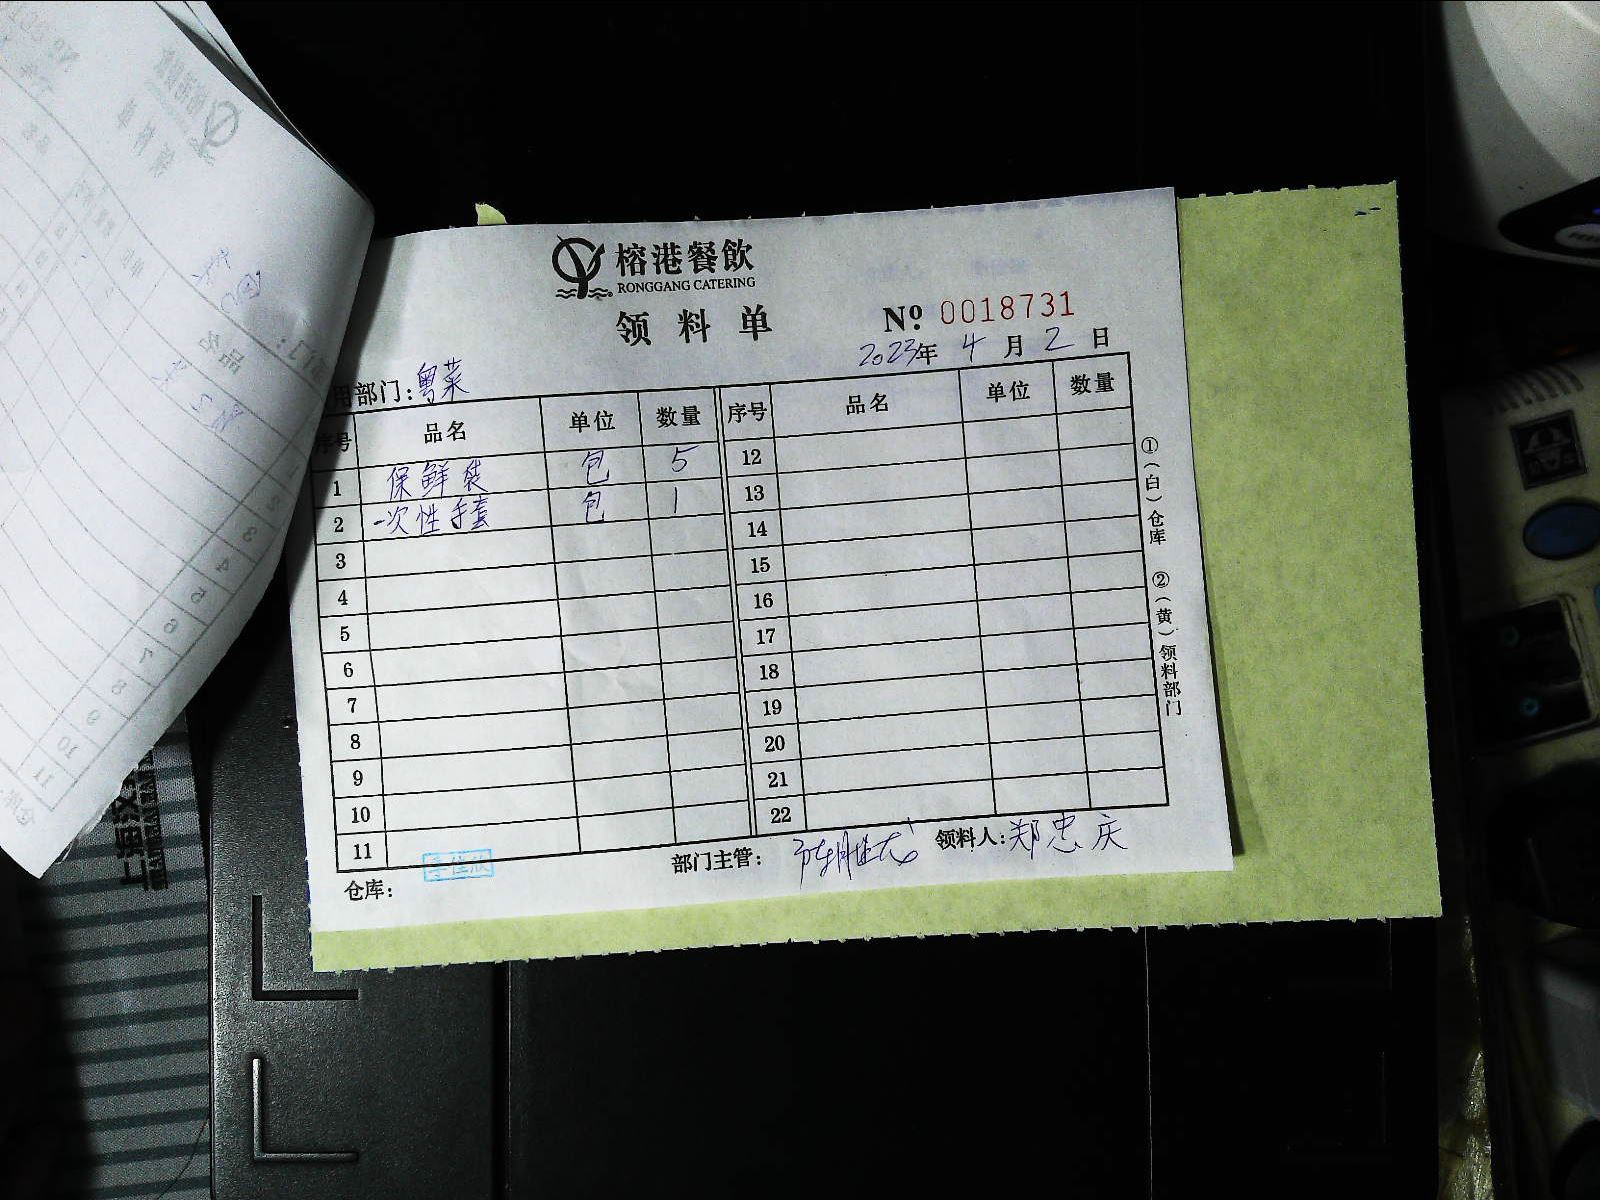 榕港餐飲
RONGGANG CATERING
领料单
№ 0018731
2023年 4 月 2 日
用部门:粤菜
序号 品名 单位 数量 序号 品名 单位 数量
1 保鲜袋 包 5 12
2 一次性手套 包 1 13
3 14
4 15
5 16
6 17
7 18
8 19
9 20
10 21
11 22
仓库: 李佳欣 部门主管: 领料人:郑忠庆
①(白)仓库 ②(黄)领料部门